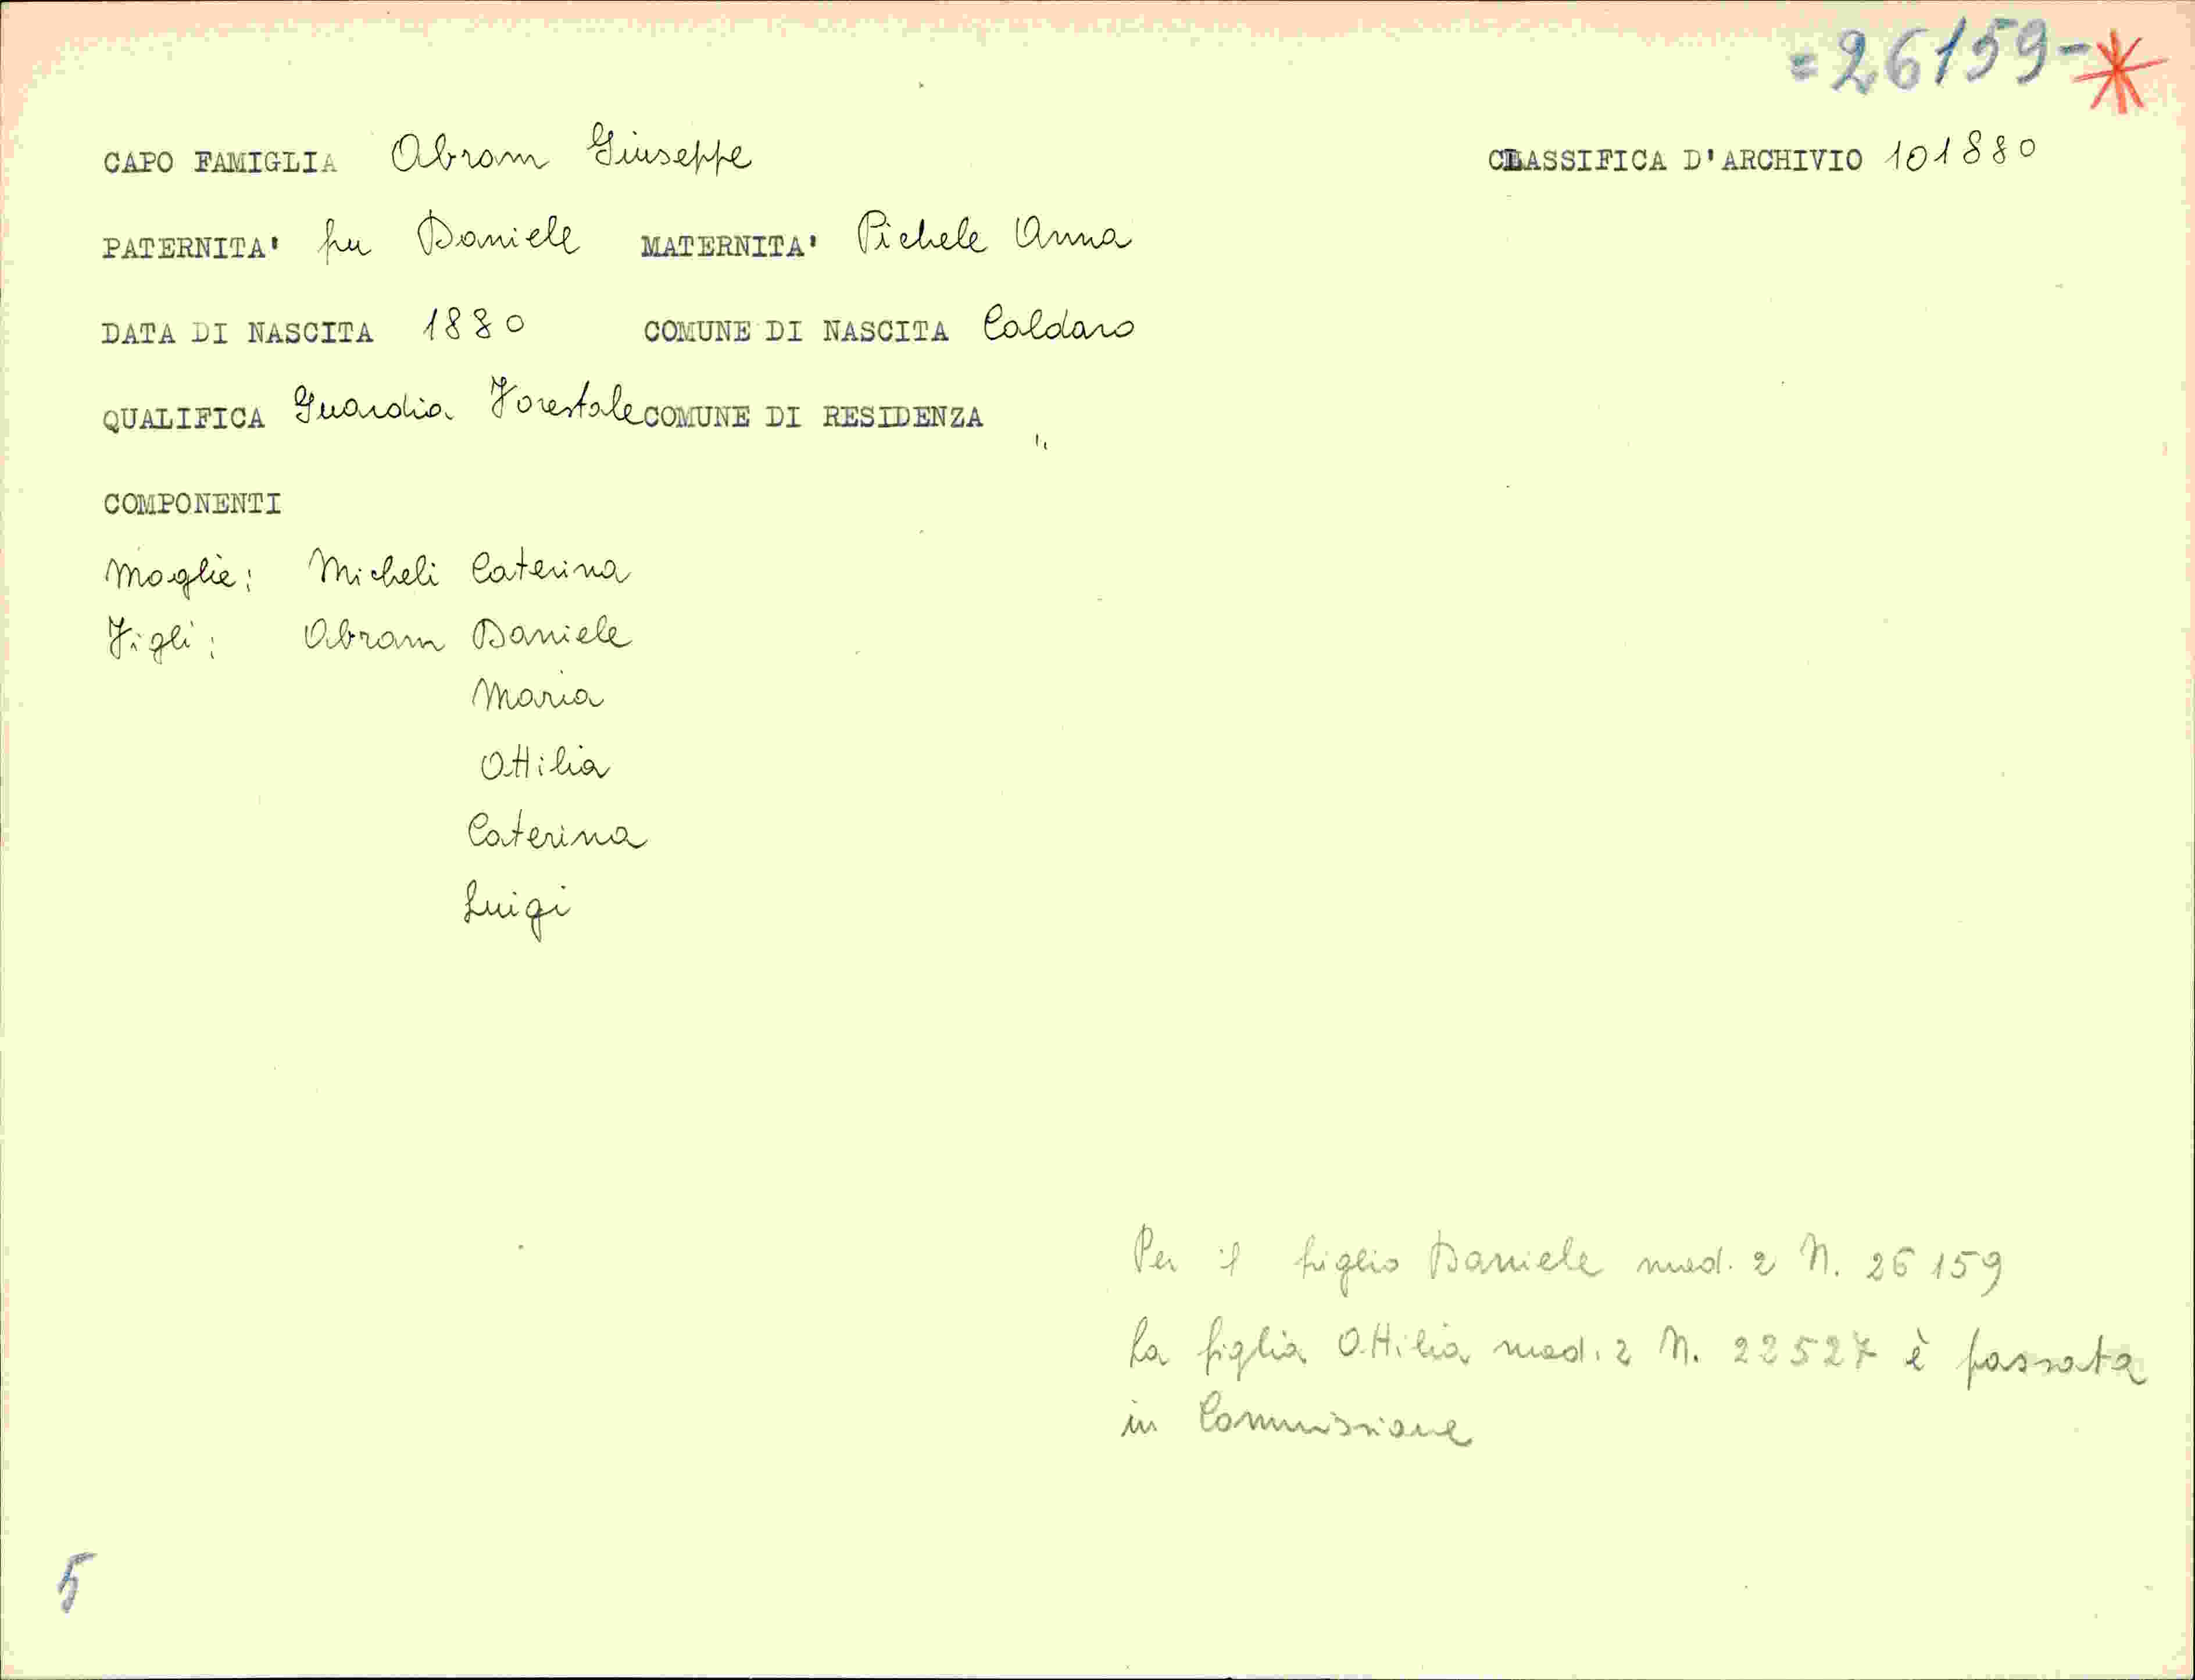 =26159-*
CAPO FAMIGLIA Abram Giuseppe CLASSIFICA D'ARCHIVIO 101880
PATERNITA' fu Daniele MATERNITA' Pichele Anna
DATA DI NASCITA 1880 COMUNE DI NASCITA Caldaro
QUALIFICA Guardia Forestale COMUNE DI RESIDENZA "
COMPONENTI
Moglie: Micheli Caterina
Figli: Abram Daniele
Maria
Ottilia
Caterina
Luigi
Per il figlio Daniele mod. 2 N. 26159
La figlia Ottilia mod. 2 N. 22527 è passata
in Commissione
5